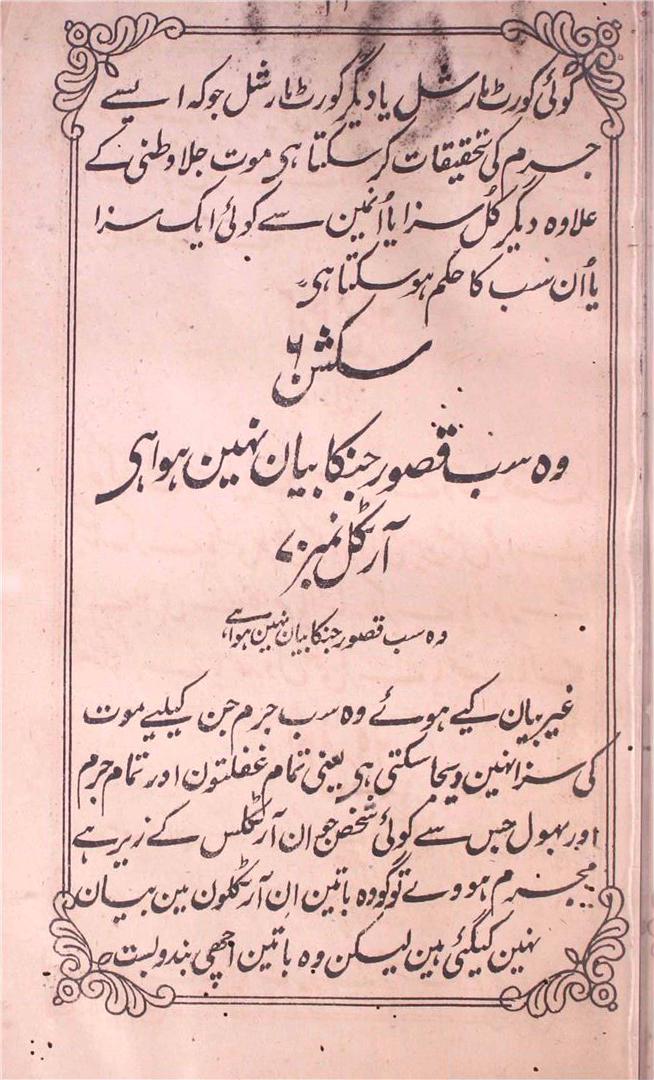 کوئی کورٹ مارشل یا دیگر کورٹ مارشل جو کہ ایسے
جرم کی تحقیقات کر سکتا ہی موت جلا وطنی کے
علاوہ دیگر کُل سزا یا اُنمین سے کوئی ایک سزا
یا اُن سب کا حکم ہو سکتا ہی۔
سکشن ۶
وہ سب قصور جنکا بیان نہین ہوا ہی
آرٹکل نمبر ۷۰
وہ سب قصور جنکا بیان نہین ہوا ہے
غیر بیان کیے ہوئے وہ سب جرم جن کیلیے موت
کی سزا نہین دیجا سکتی ہی یعنی تمام غفلتون اور تمام جرم
اور بھول جس سے کوئی شخص جو ان آرٹکلس کے زیر ہے
مجرم ہووے تو گو وہ باتین اِن آرٹکلون مین بیان
نہین کیگئی ہین لیکن وہ باتین اچھی بندوبست